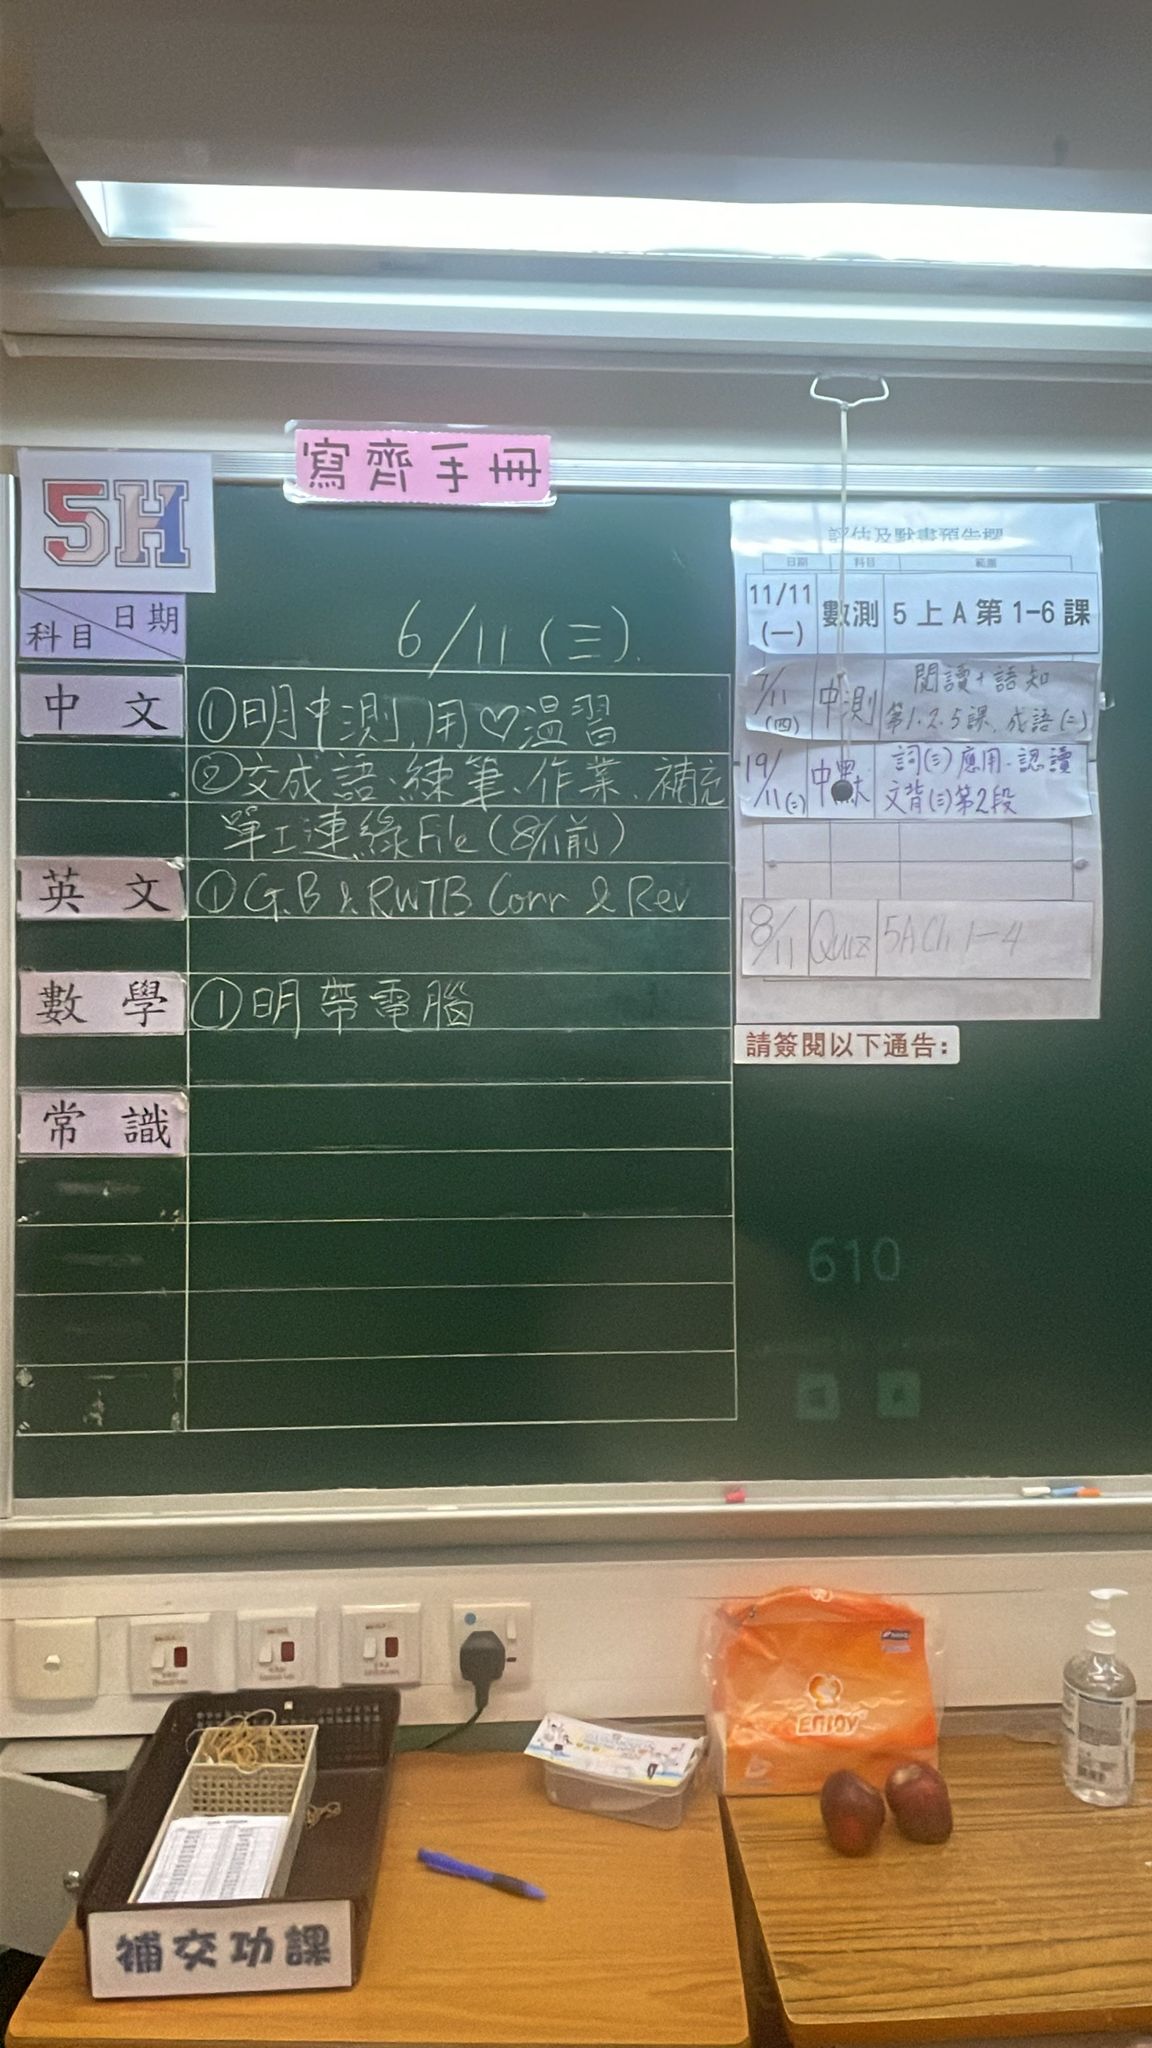 寫齊手冊
5H
日期
科目
6/11(三).
中文
①明中測,用♡溫習
②交成語、練筆、作業、補充
單工連綠File(8/11前)
英文
①G.B & RWTB Corr & Rev
數學
①明帶電腦
常識
評估及默書預告欄
日期 科目 範圍
11/11(一) 數測 5上A第1-6課
7/11(四) 中測 閱讀+語知
第1.2.5課、成語(二)
19/11(二) 中默 詞(三)應用、認讀
文背(三)第2段
8/11 Quiz 5A Ch 1-4
請簽閱以下通告:
610
Enjoy
補交功課